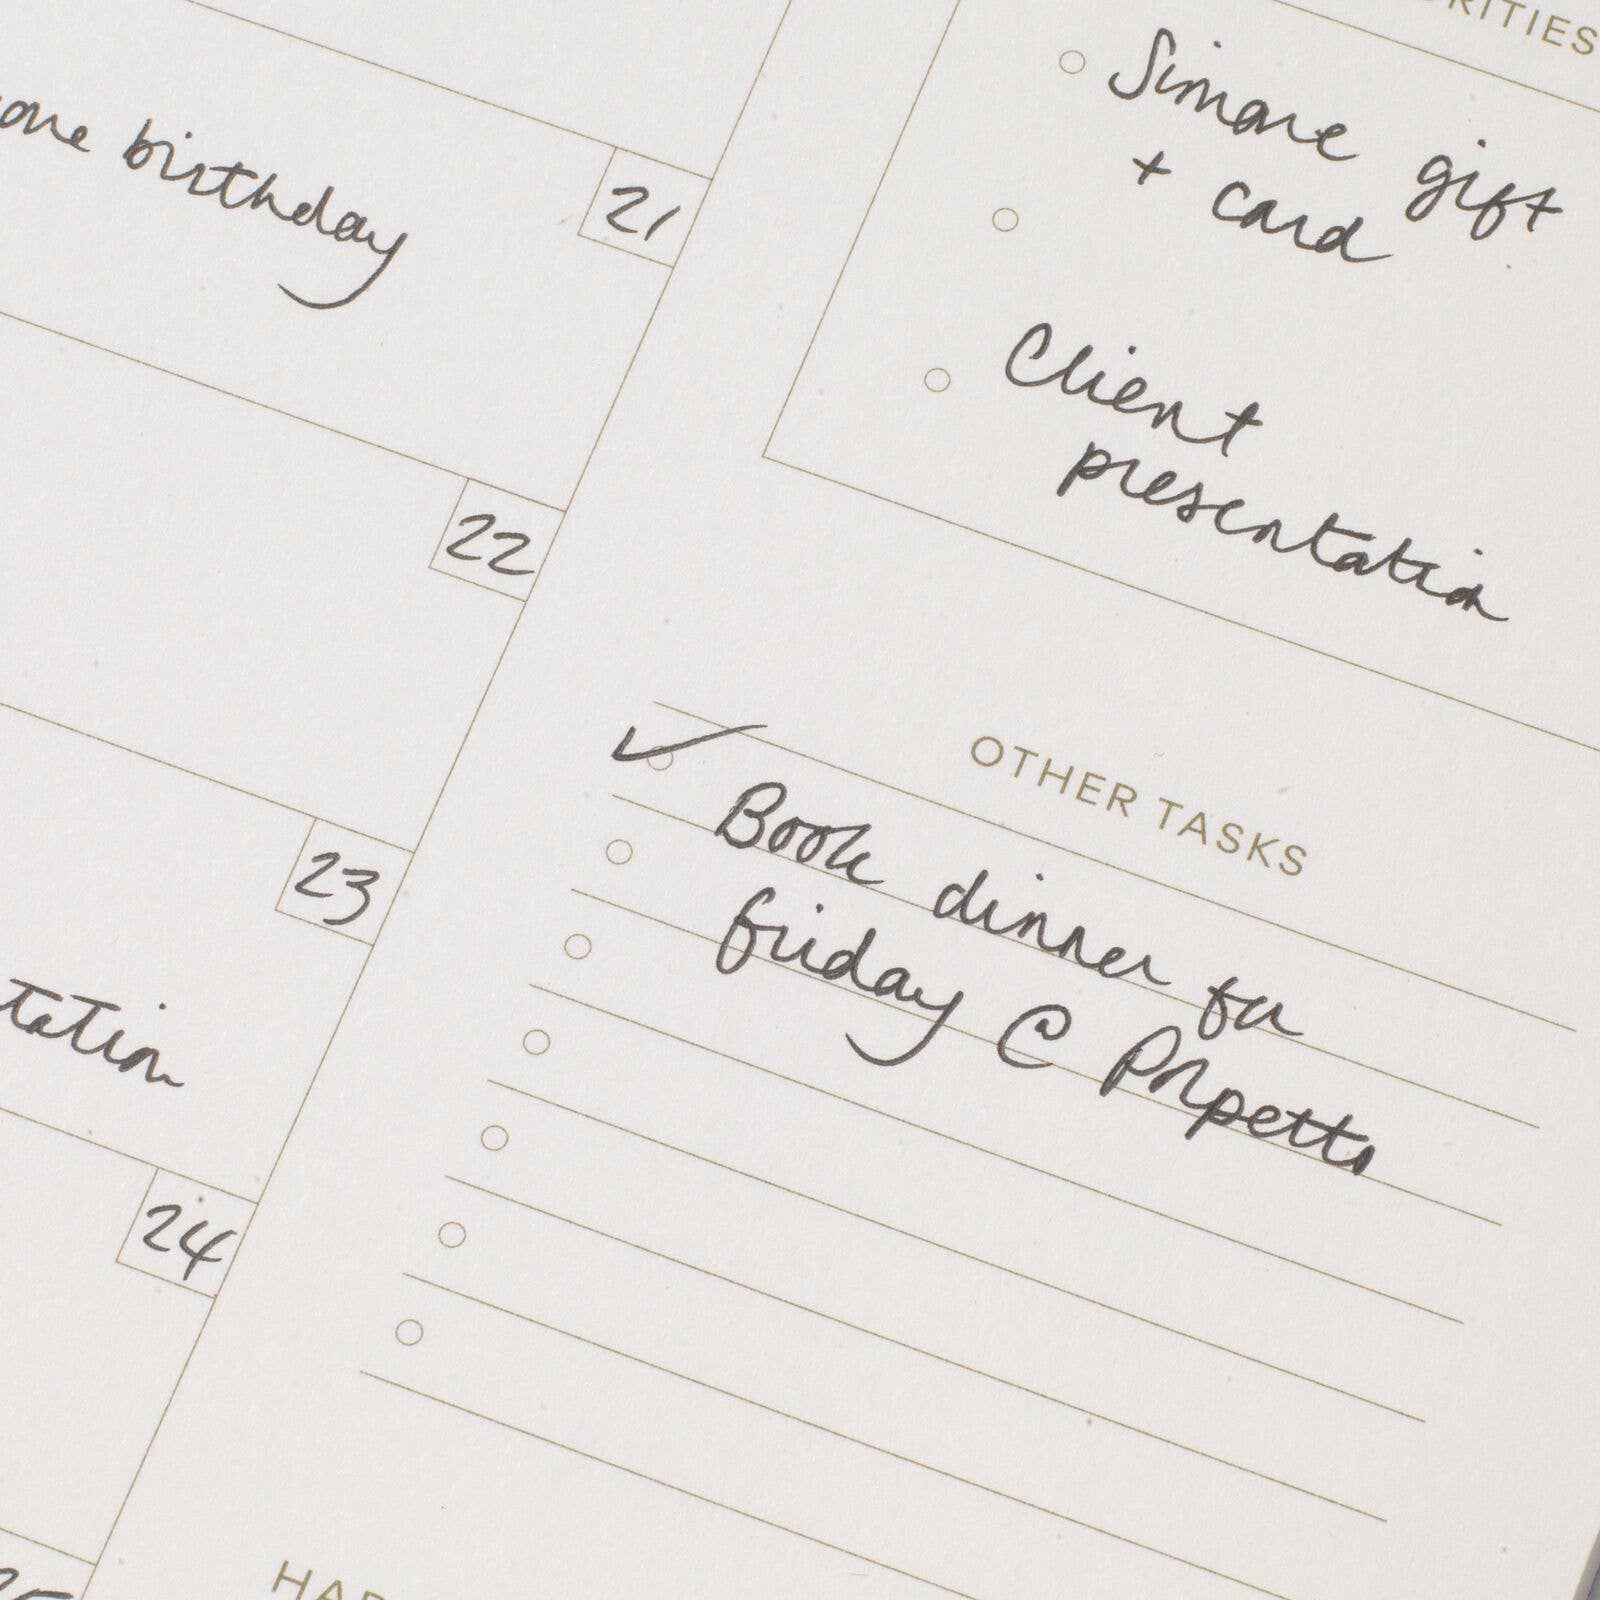 one birthday
21
22
23
tation
24
25
RITIES
Simone gift
+ card
Client
presentation
OTHER TASKS
✓ Book dinner for
friday @ Polpetto
HAB